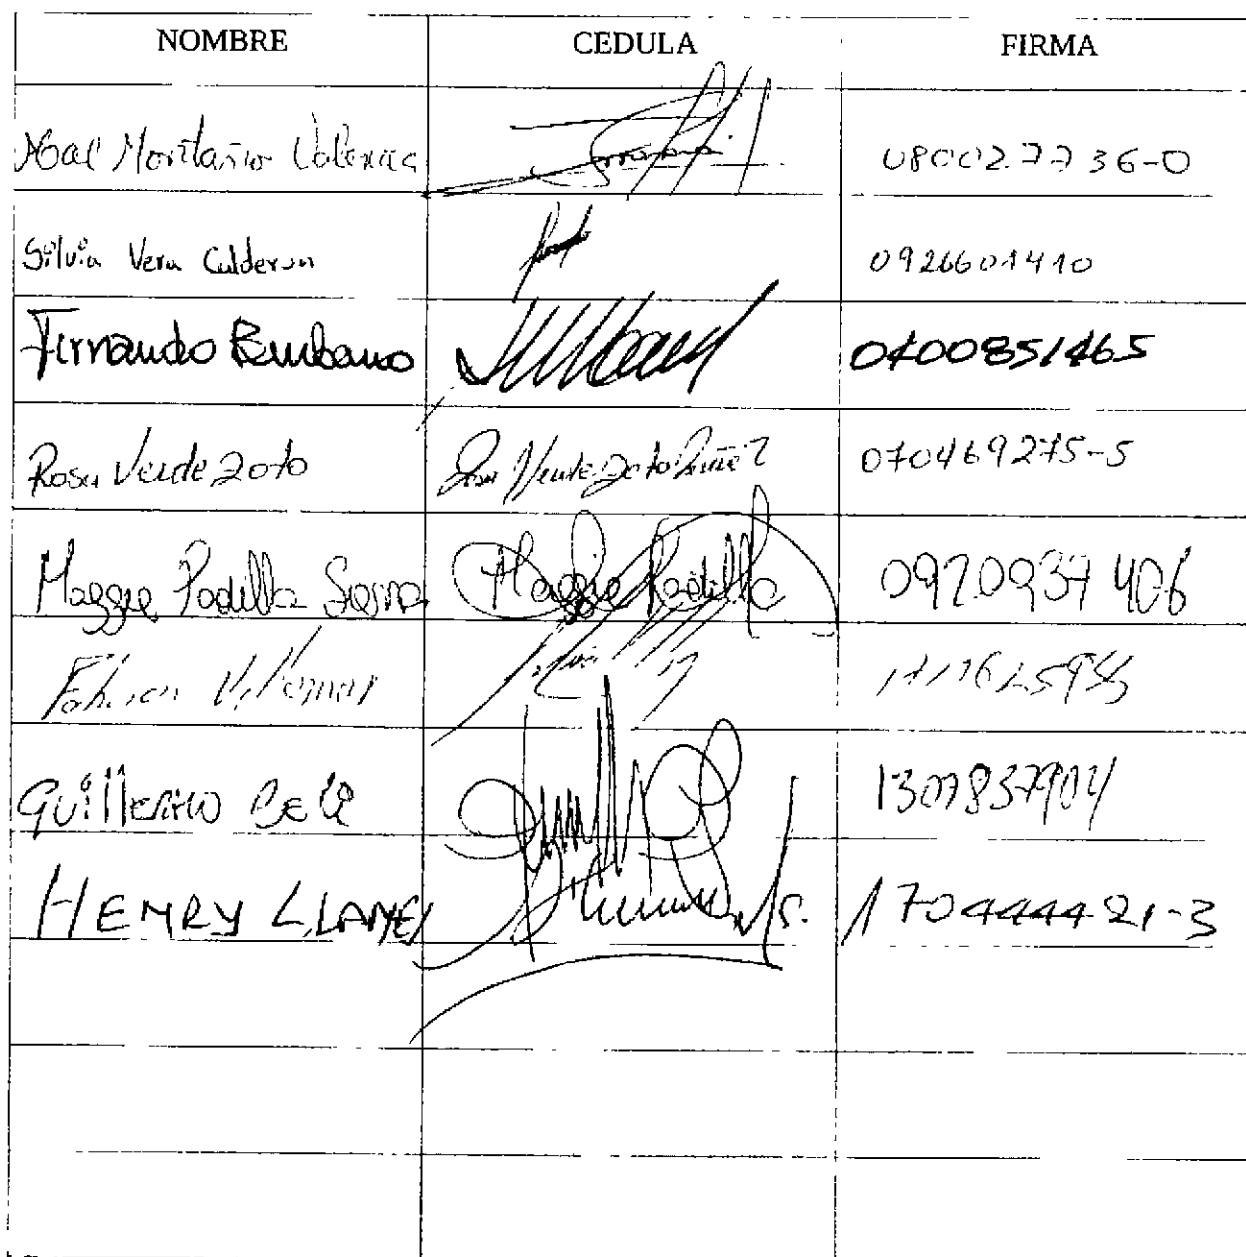 NOMBRE CEDULA FIRMA
Abal Montaño Valencia 080027736-0
Silvia Vera Calderon 0926601410
Fernando Burbano 0400851465
Rosa Verdezoto Rosa Verdezoto Nuñez 070469275-5
Maggie Padilla Serna Maggie Padilla 0920937406
Fabian Villamar
Guillermo 1307837904
HENRY LLANES S. 170444421-3